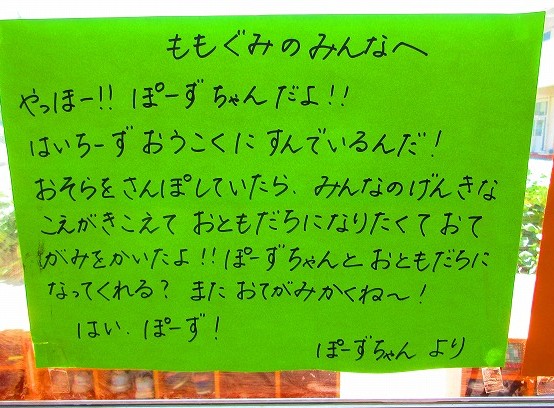 ももぐみのみんなへ
やっほー!! ぽーずちゃんだよ!!
はいちーずおうこくにすんでいるんだ!
おそらをさんぽしていたら、みんなのげんきな
こえがきこえておともだちになりたくておて
がみをかいたよ!!ぽーずちゃんとおともだちに
なってくれる? またおてがみかくね〜!
はい、ぽーず!
ぽーずちゃん より